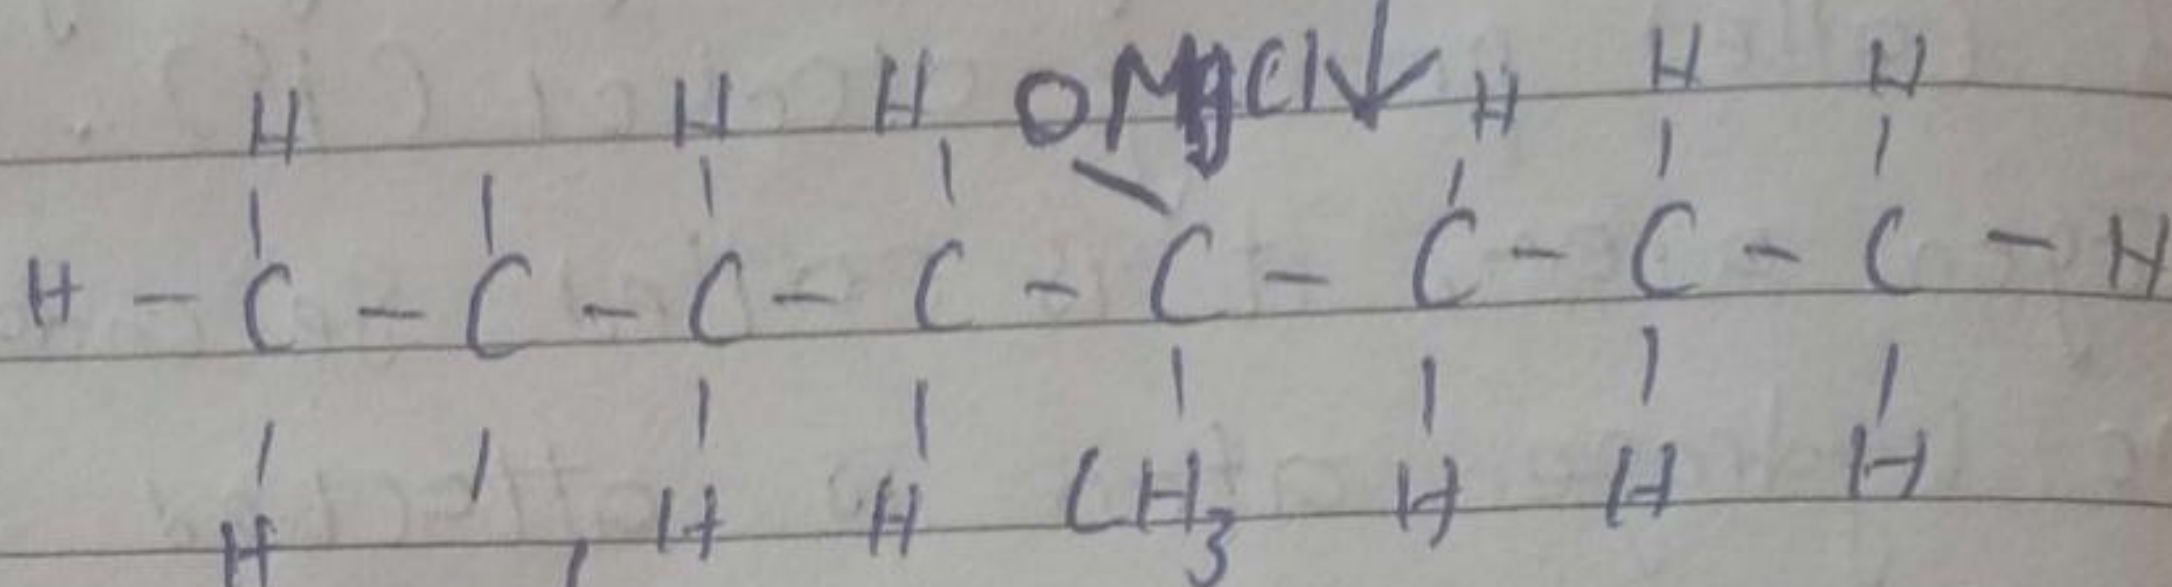 H H H OMgCl↓ H H H
H - C - C - C - C - C - C - C - C - H
H H H CH3 H H H